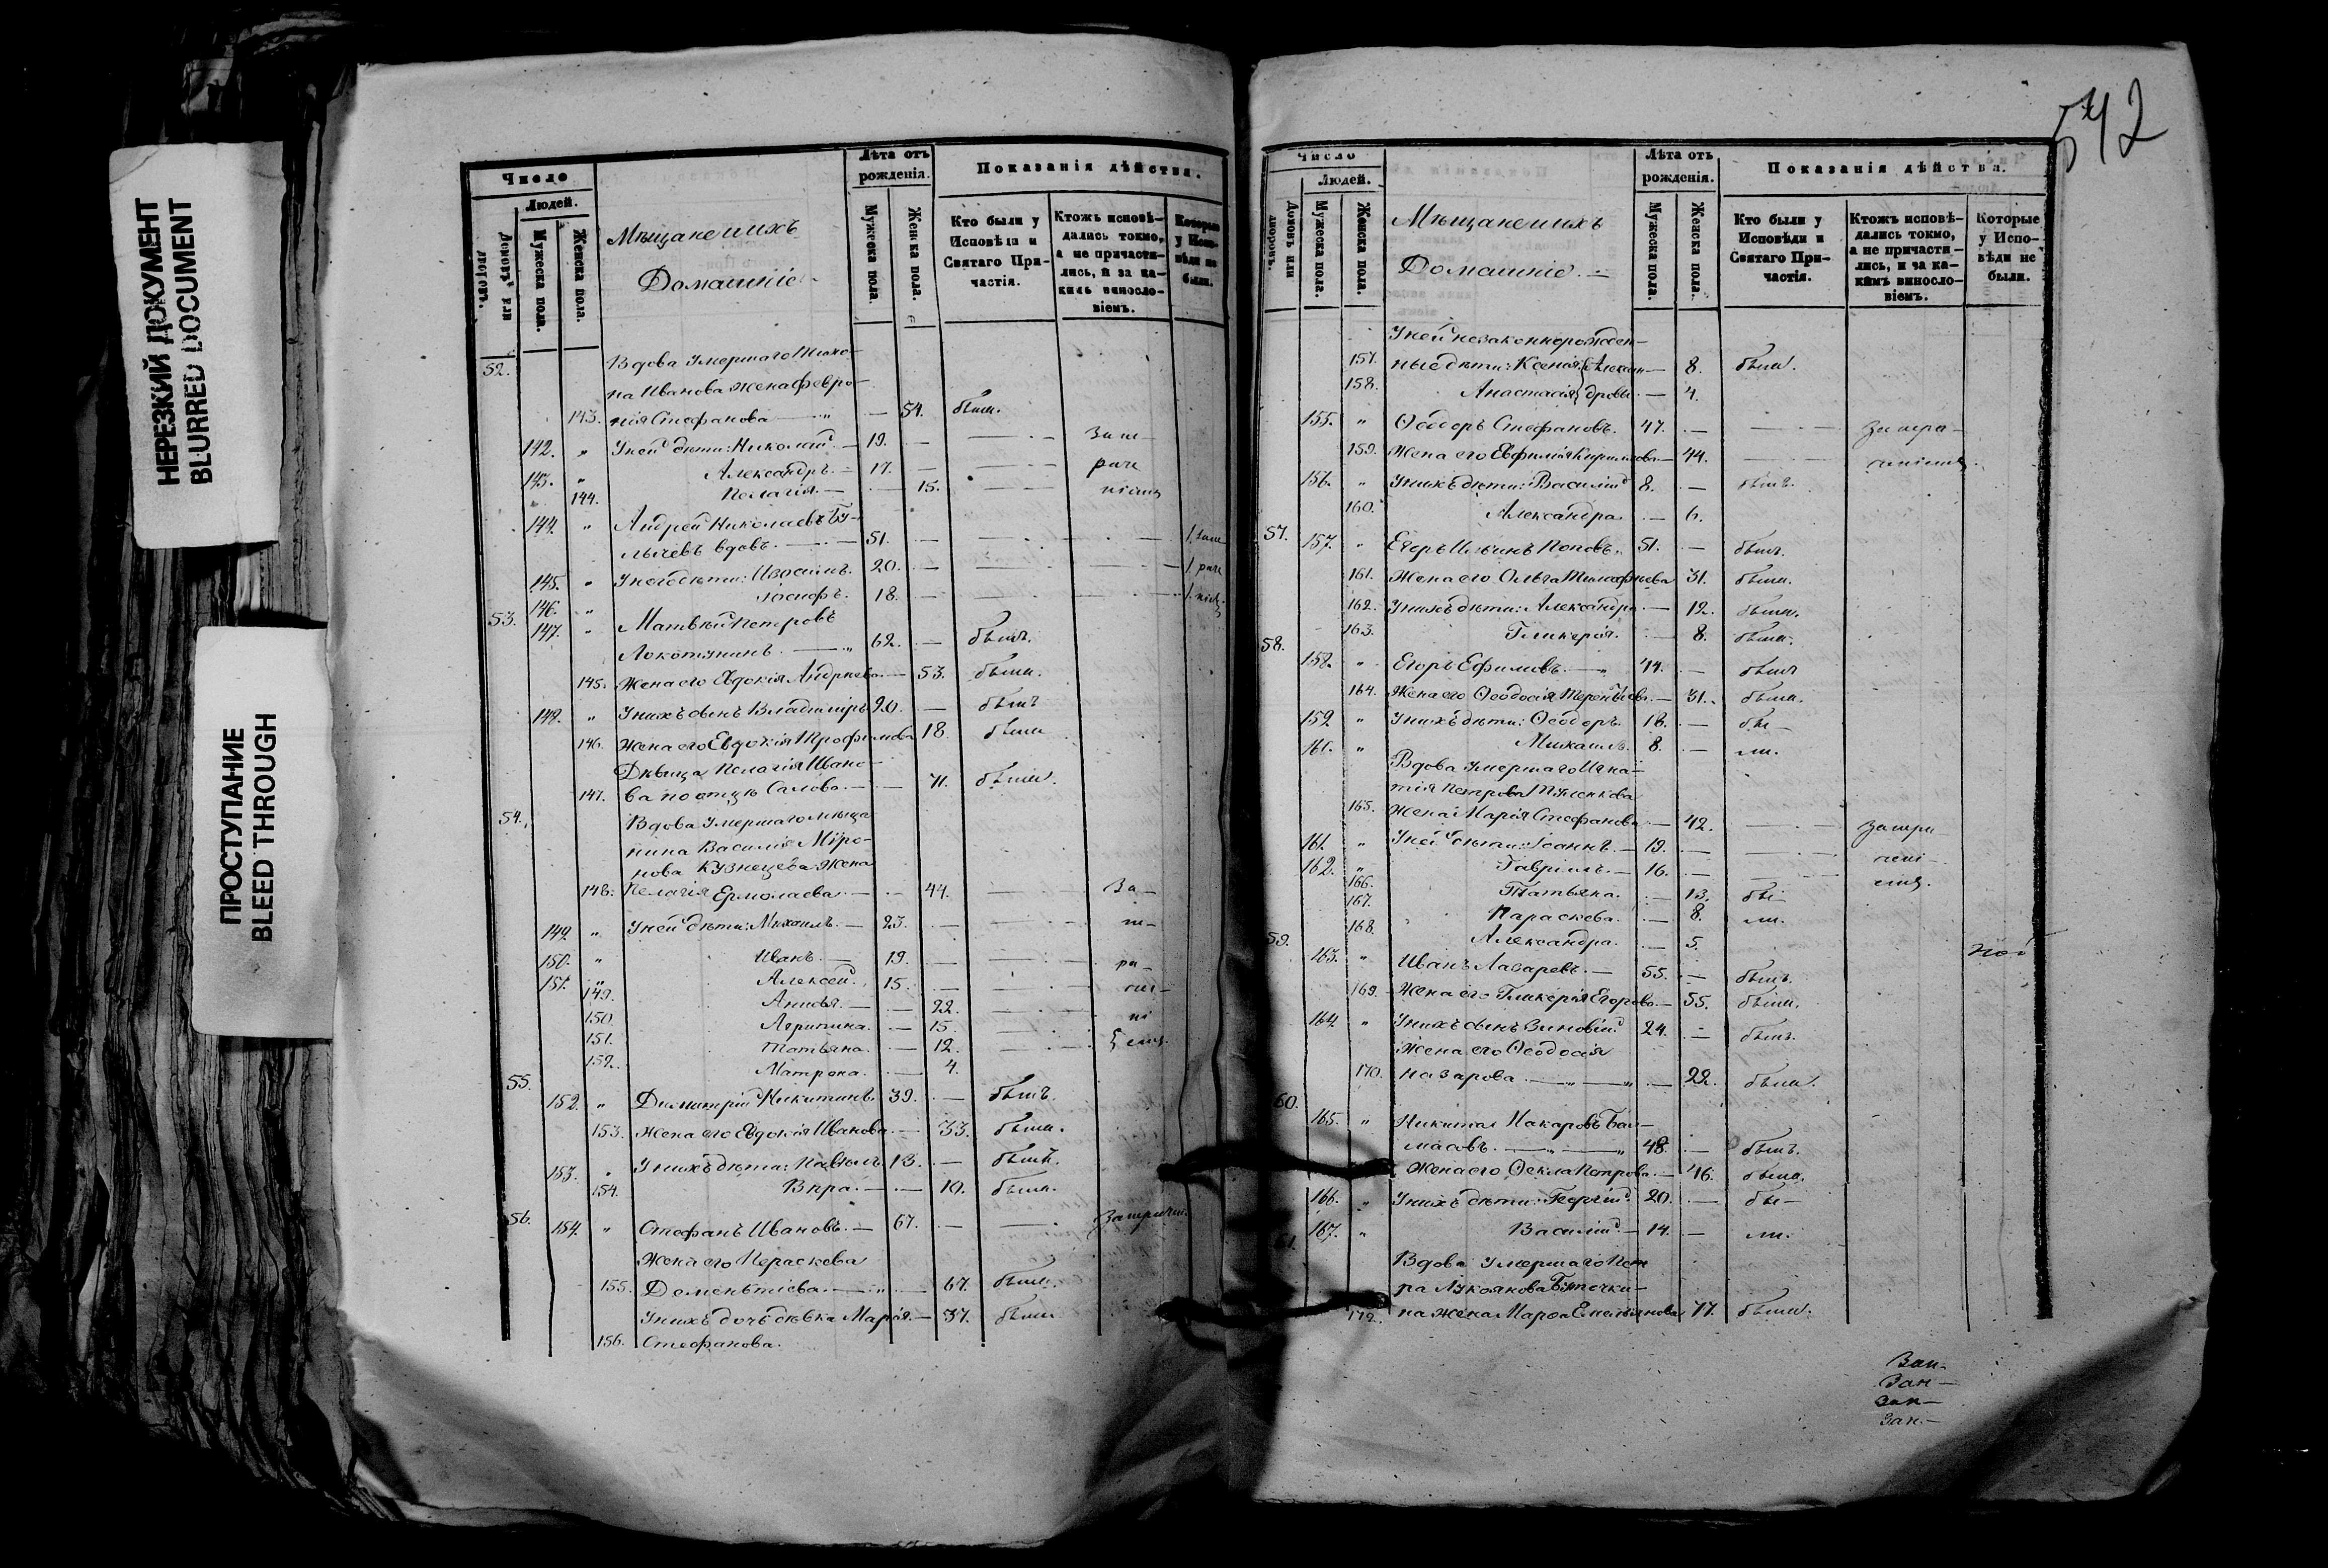 НЕРЕЗКИЙ ДОКУМЕНТ
BLURRED DOCUMENT
ПРОСТУПАНИЕ
BLEED THROUGH
Число
Людей.
Домовъ или дворовъ.
Мужеска пола.
Женска пола.
Мѣщане и ихъ
Домашніе
Лѣта отъ рожденія.
Мужеска пола.
Женска пола.
Показанія дѣйства.
Кто были у Исповѣди и Святаго Причастія.
Ктожъ исповѣдались токмо, а не причастились, и за какимъ винословіемъ.
Которые у Исповѣди не были.
52. Вдова умершаго Тихо-
на Иванова жена Февро-
143. нія Стефанова — 54. была.
142. " У ней дѣти: Николай — 19. — За не-
143. " Александръ — 17. — раче
144. Пелагія — 15. — ніемъ
144. " Андрей Николаевъ
вдовъ — 51.
145. " У него дѣти: 20.
146. " Іосифъ. 18.
53. 147. " Матвѣй Петровъ
Локотунинъ — " 62. — былъ.
145. Жена его Евдокія Андреева — 53. была.
148. " У нихъ сынъ Владиміръ 20. — былъ
146. Жена его Евдокія Трофимова 18 была
Дѣвица Пелагія Ивано-
147. ва по отцѣ Салова — 71. была.
54. Вдова умершаго мѣща
нина Василія Миро-
нова Кузнецова жена
148. Пелагія Ермолаева — 44. — За-
149. " У ней дѣти: Михаилъ — 23. —
150. " Иванъ — 19. —
151. " Алексей 15. —
149. Анисья — 22.
150. Агрипина. — 15.
151. Татьяна. — 12.
152. Матрона. — 4.
55. 152. " Димитрій Никитинъ 39. — былъ.
153. Жена его Евдокія Иванова — 33. была.
153. " У нихъ дѣти: Павелъ 13. — былъ.
154. Вѣра — 10. была.
56. 154. " Стефанъ Ивановъ — 67. —
Жена его Параскева
155. Дементіева — " — 67. была.
У нихъ дочь дѣвка Марія — 37. была
156. Стефанова.
542
Число
Людей.
Домовъ или дворовъ.
Мужеска пола.
Женска пола.
Мѣщане и ихъ
Домашніе. —
Лѣта отъ рожденія.
Мужеска пола.
Женска пола.
Показанія дѣйства.
Кто были у Исповѣди и Святаго Причастія.
Ктожъ исповѣдались токмо, а не причастились, и за какимъ винословіемъ.
Которые у Исповѣди не были.
У ней незаконнорожден-
157. ные дѣти: Ксенія } Алексан — 8. были.
158. Анастасія } дровы — 4.
155. " Ѳеодоръ Стефановъ. 47. —
159. Жена его Евфимія Кирилова — 44. —
156. " У нихъ дѣти: Василій 8. — былъ.
160. Александра — 6.
57. 157. " Егоръ Ильинъ Поповъ. 51. — былъ.
161. Жена его Ольга Тимофеева 31. была.
162. У нихъ дѣти: Александра — 12. была.
163. Гликерія. — 8. была.
58. 158. " Егоръ Ефимовъ — " 44. — былъ
164. Жена его Ѳеодосія Терентьева — 31. была.
159. " У нихъ дѣти: Ѳеодоръ. 18. — бы-
160. " Михаилъ. 8. — ли.
Вдова умершаго Игна-
тія Петрова
165. жена Марія Стефанова — 42.
161. " У ней дѣти: Іоаннъ. — 19. —
162. " Гавріилъ. — 16. —
166. Татьяна. — 13. бы-
167. Параскева. — 8. ли.
168. Александра. — 5.
59. 163. " Иванъ Лазаревъ. — 55. — былъ.
169. Жена его Гликерія Егорова — 55. была.
164. " У нихъ сынъ Зиновій 24. — былъ.
Жена его Ѳеодосія
170. Назарова — " — " — 22. была.
60. 165. " Никита Макаровъ Бал-
масовъ. — " — " 48. — былъ.
Жена его Ѳекла Петрова — 46. была.
166. " У нихъ дѣти: Георгій. 20. — бы-
167. " Василій — 14. — ли.
61. Вдова умершаго Пет
ра Лукоянова Буточки-
172. на жена Марѳа Емельянова 77. была.
Зап-
Зап-
Зап-
Зап-